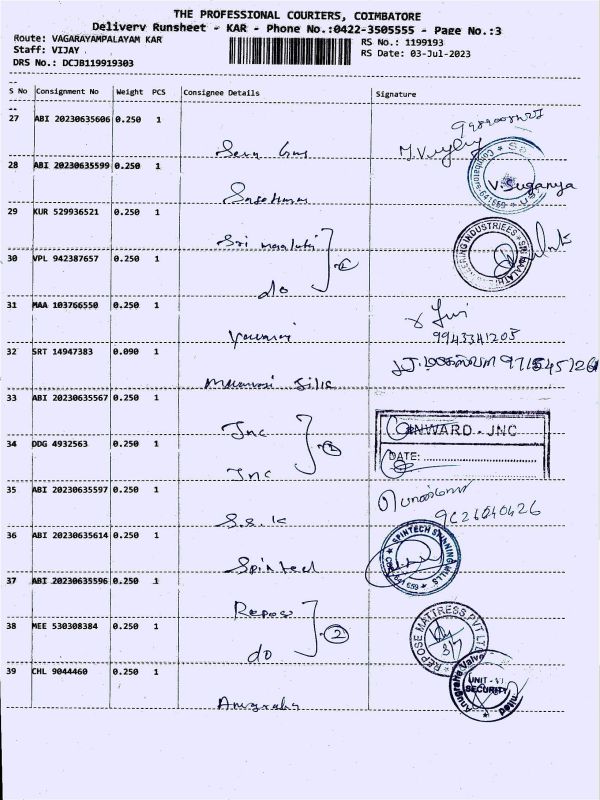 THE PROFESSIONAL COURIERS, COIMBATORE
Delivery Runsheet - KAR - Phone No.:0422-3505555 - Page No.:3
Route: VAGARAYAMPALAYAM KAR
RS No.: 1199193
Staff: VIJAY
RS Date: 03-Jul-2023
DRS No.: DCJB119919303
S No Consignment No Weight PCS Consignee Details Signature
27 ABI 20230635606 0.250 1
28 ABI 20230635599 0.250 1
V.Suganya
29 KUR 529936521 0.250 1 Sri
30 VPL 942387657 0.250 1 do
31 MAA 103766550 0.250 1
32 SRT 14947383 0.090 1
33 ABI 20230635567 0.250 1 Jnc
INWARD - JNC
34 DDG 4932563 0.250 1 Jnc
DATE:
35 ABI 20230635597 0.250 1 S.S.K
36 ABI 20230635614 0.250 1 Spintech
SPINTECH SPINNING MILLS
37 ABI 20230635596 0.250 1 Repose
38 MEE 530308384 0.250 1 do 2
REPOSE MATTRESS PVT LTD
39 CHL 9044460 0.250 1 Anugraha
Anugraha Valve
UNIT - VI
SECURITY